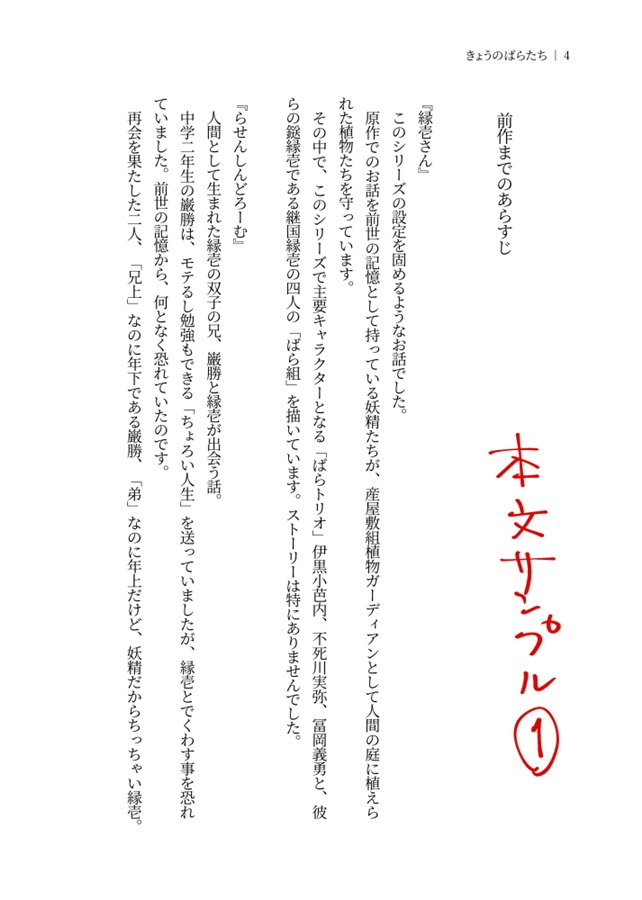 きょうのばらたち | 4
前作までのあらすじ
本文サンプル①
『縁壱さん』
このシリーズの設定を固めるようなお話でした。
原作でのお話を前世の記憶として持っている妖精たちが、産屋敷組植物ガーディアンとして人間の庭に植えら
れた植物たちを守っています。
その中で、このシリーズで主要キャラクターとなる「ばらトリオ」伊黒小芭内、不死川実弥、冨岡義勇と、彼
らの鎹縁壱である継国縁壱の四人の「ばら組」を描いています。ストーリーは特にありませんでした。
『らせんしんどろーむ』
人間として生まれた縁壱の双子の兄、巌勝と縁壱が出会う話。
中学二年生の巌勝は、モテるし勉強もできる「ちょろい人生」を送っていましたが、縁壱とでくわす事を恐れ
ていました。前世の記憶から、何となく恐れていたのです。
再会を果たした二人、「兄上」なのに年下である巌勝、「弟」なのに年上だけど、妖精だからちっちゃい縁壱。